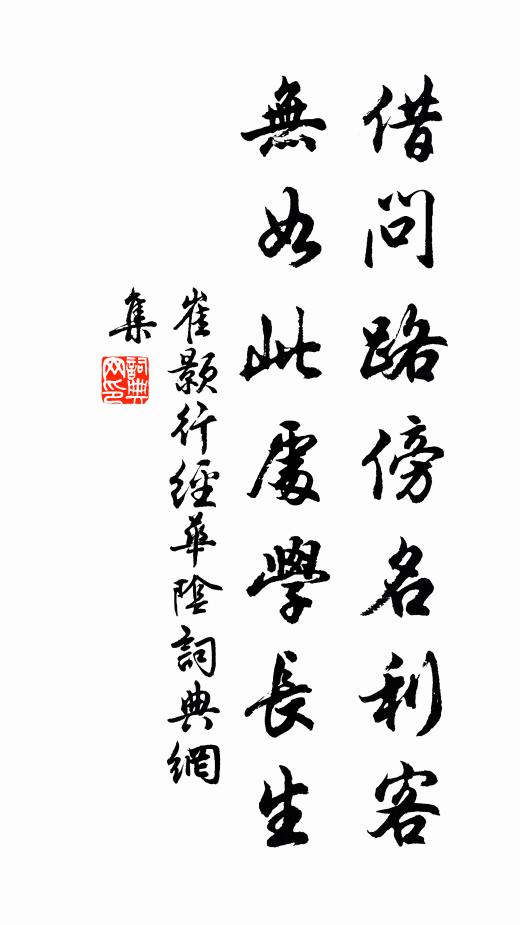 借問路傍名利客
無如此處學長生
崔顥行經華陰詞典網
集
詞典
网印